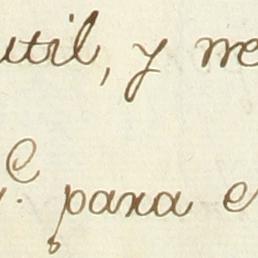 util, y me
para e